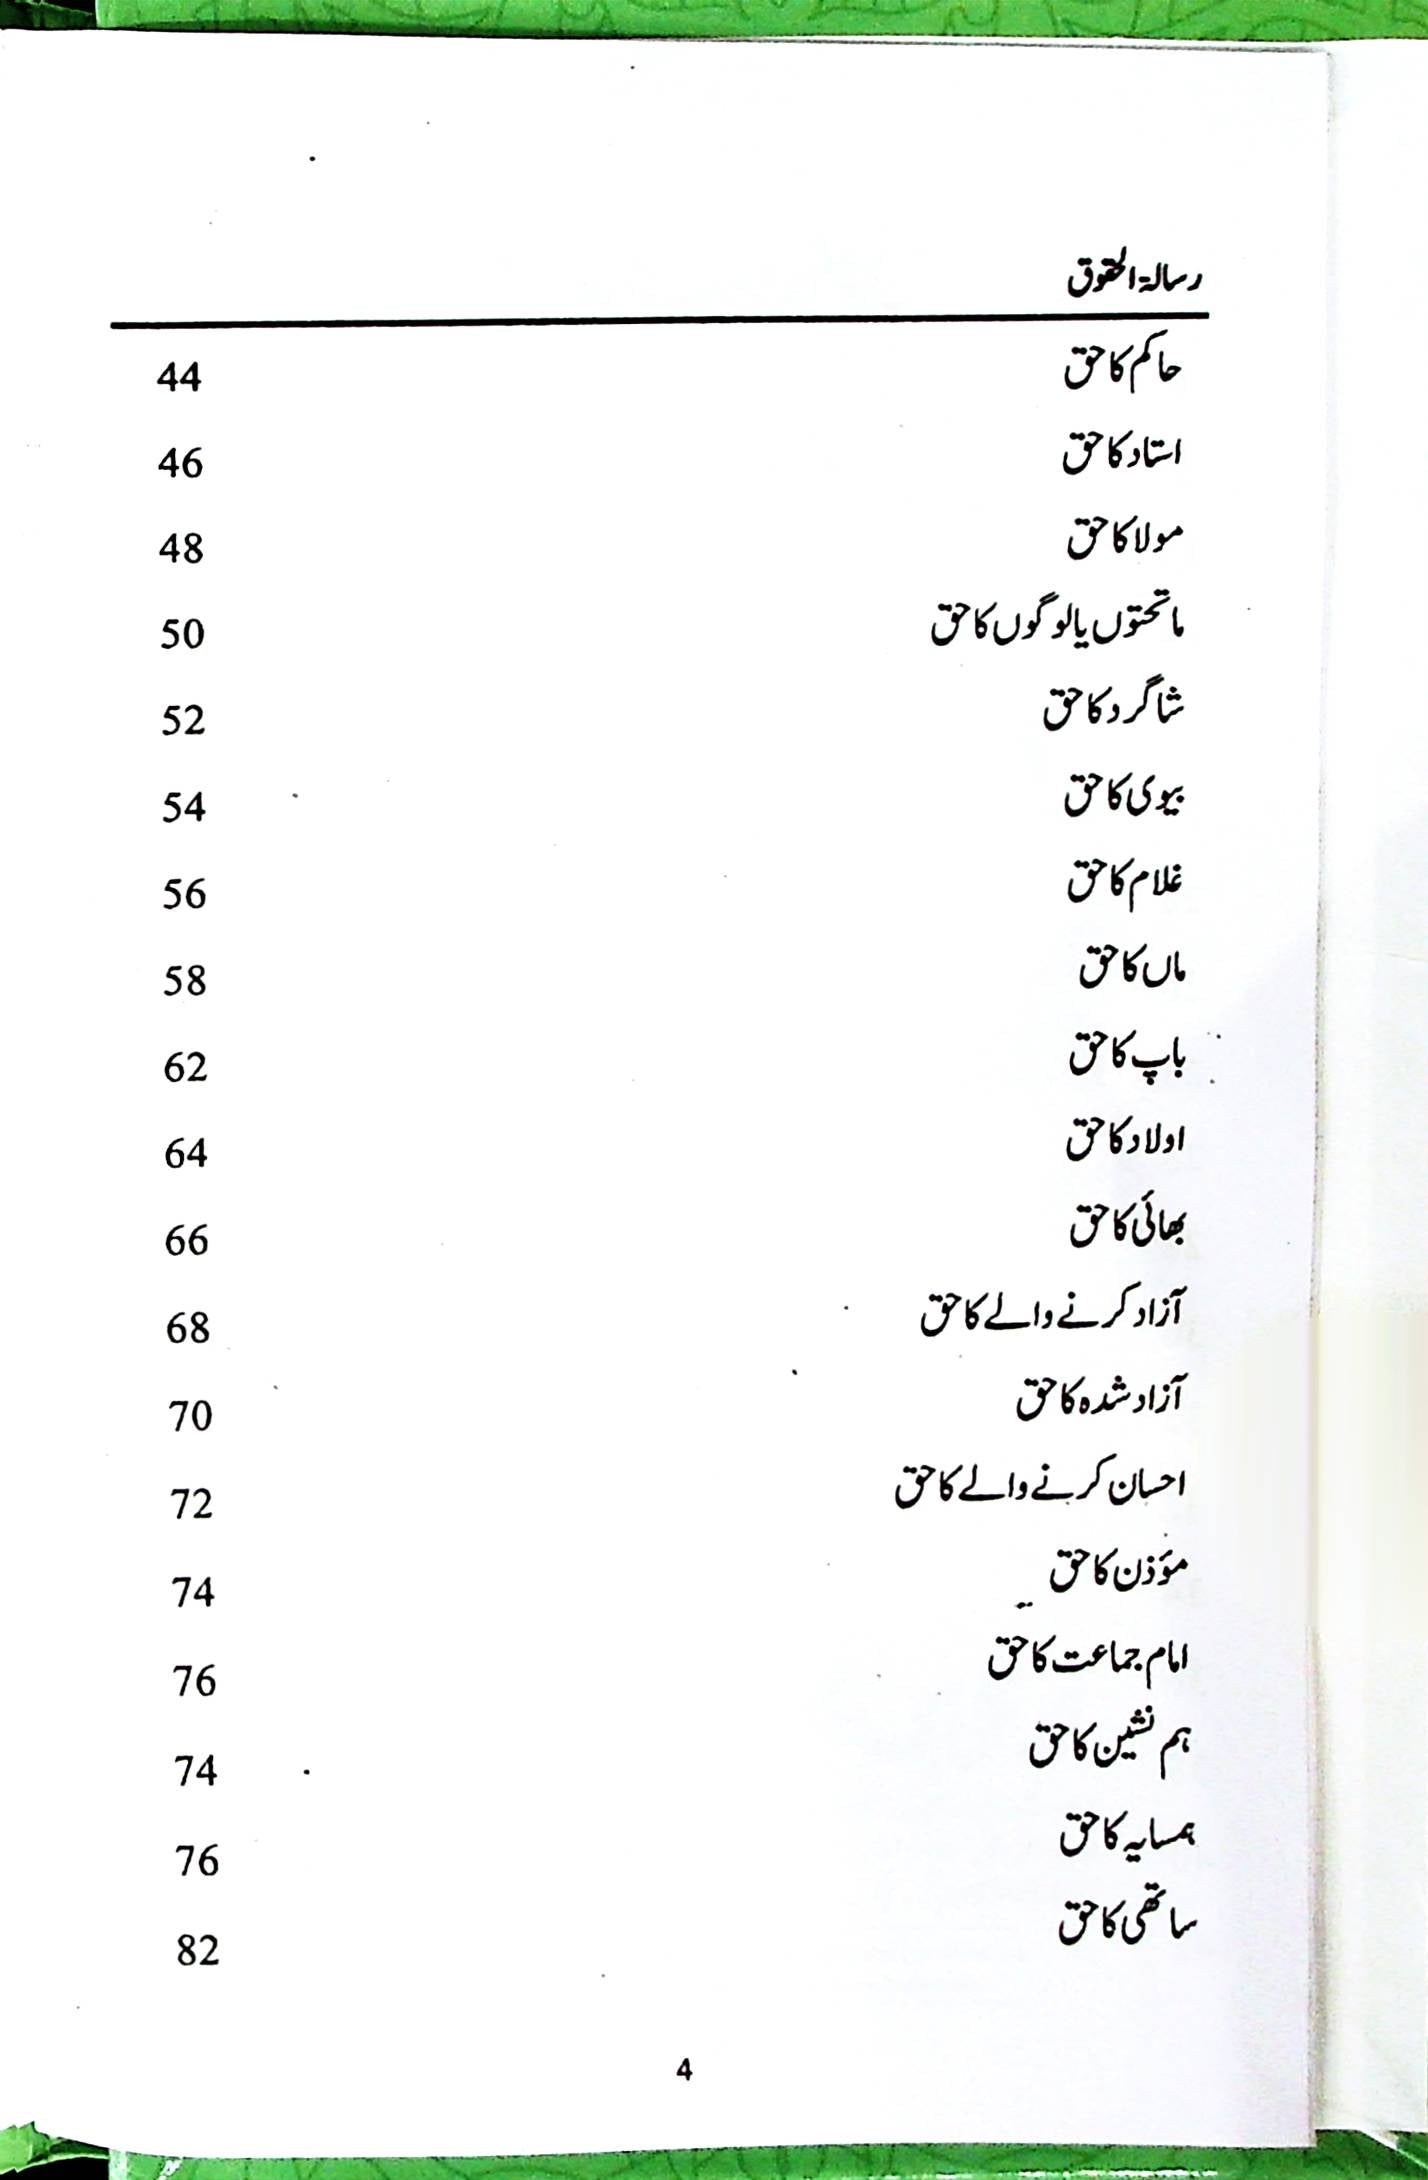 رسالۃ الحقوق
حاکم کا حق 44
استاد کا حق 46
مولا کا حق 48
ماتحتوں یا لوگوں کا حق 50
شاگرد کا حق 52
بیوی کا حق 54
غلام کا حق 56
ماں کا حق 58
باپ کا حق 62
اولاد کا حق 64
بھائی کا حق 66
آزاد کرنے والے کا حق 68
آزاد شدہ کا حق 70
احسان کرنے والے کا حق 72
مؤذن کا حق 74
امام جماعت کا حق 76
ہم نشین کا حق 74
ہمسایہ کا حق 76
ساتھی کا حق 82
4